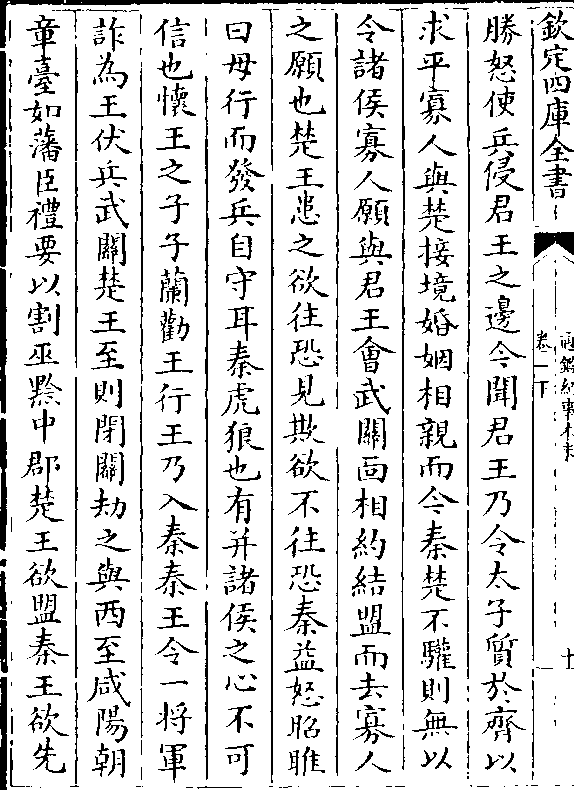 欽定四庫全書
勝怒使兵侵君王之邊今聞君王乃令太子質於齊以
求平寡人與楚接境婚姻相親而今秦楚不驩則無以
令諸侯寡人願與君王會武關面相約結盟而去寡人
之願也楚王患之欲往恐見欺欲不往恐秦益怒昭睢
曰毋行而發兵自守耳秦虎狼也有并諸侯之心不可
信也懷王之子子蘭勸王行王乃入秦秦王令一將軍
詐為王伏兵武關楚王至則閉關劫之與西至咸陽朝
章臺如藩臣禮要以割巫黔中郡楚王欲盟秦王欲先
卷一下